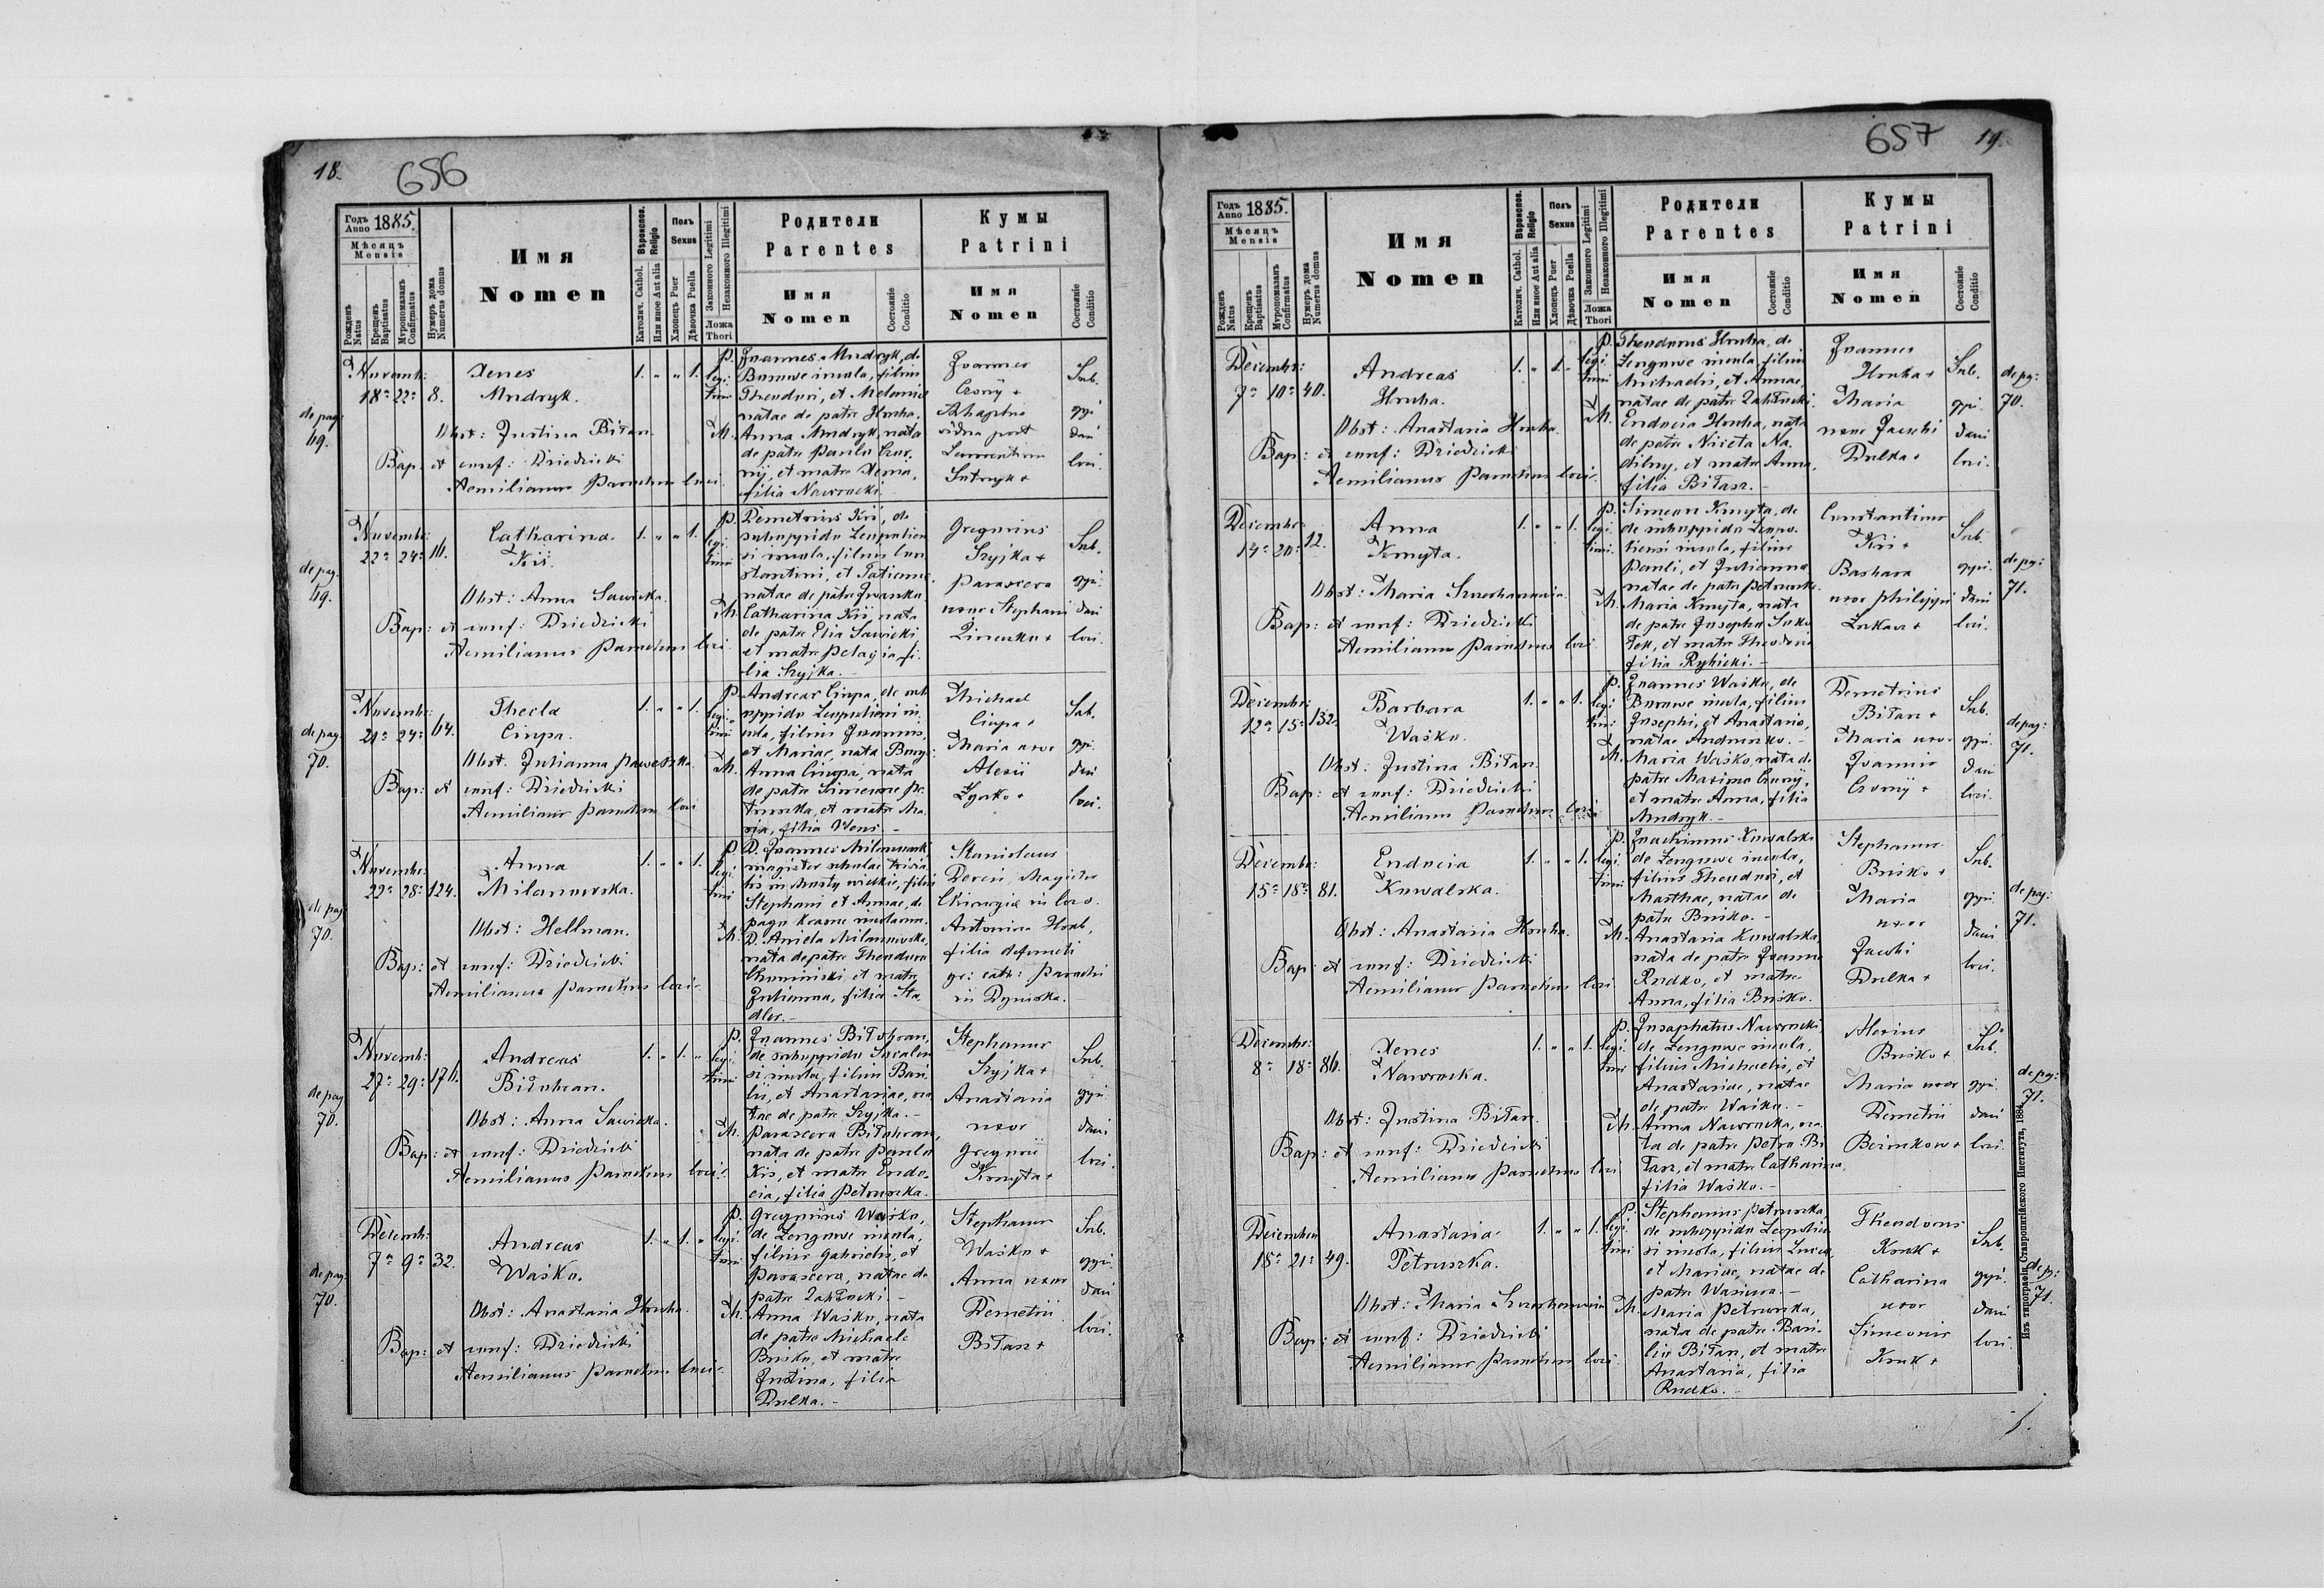 18.
656
Годъ
Anno 1885.
Мѣсяцъ
Mensis
Рожденъ
Natus
Крещенъ
Baptisatus
Мѵропомазанъ
Confirmatus
Нумеръ дома
Numerus domus
Имя
Nomen
Вѣроисповѣд.
Religio
Католич. Cathol.
Или иное Aut alia
Полъ
Sexus
Хлопецъ Puer
Дѣвочка Puella
Законного Legitimi
Незаконного Illegitimi
Ложа
Thori
Родители
Parentes
Имя
Nomen
Состояніе
Conditio
Кумы
Patrini
Имя
Nomen
Состояніе
Conditio
de pag: 69.
Novemb:
18a 22a 8.
Xenes
Mudryk.
Obst: Justina Biłan.
Bap: et conf: Driedzicki
Aemilianus Parochus loci.
1. „ „ 1.
legi
timi
P. Joannes Mudryk, de
Burowe incola, filius
Theodori, et Melaniae
natae de patre Hruha.
M. Anna Mudryk, nata
de patre Paulo Czor
nyj, et matre Xenia,
filia Naworocki.
Joannes
Czornÿ +
vidua post
Laurentium
Sub.
opi
dani
loci.
de pag. 69.
Novemb:
22a 24a 16.
Catharina
Kiś.
Obst: Anna Sawicka.
Bap: et conf: Driedzicki
Aemilianus Parochus loci.
1. „ „ 1.
legi
timi
P. Demetrius Kiś, de
suboppido Leopolien
si incola, filius Con
stantini, et Tatianae,
natae de patre Iwanku
M. Catharina Kiś, nata
de patre Elia Sawicki
et matre Pelagia fi-
lia Szyjka.-
Gregorius
Szyjka +
Parascева
uxor Stephani
Zinenko +
Sub.
opi.
dani
loci.
de pag. 70.
Novemb:
21a 24a 64.
Thecla
Ciupa.
Obst. Julianna Paweszka.
Bap: et conf: Driedzicki
Aemilianus Parochus loci
1. „ „ 1.
legi
timi
P. Andreas Ciupa, de sub
oppido Leopoliensi in
cola, filius Joannis,
et Mariae, nata Bucyj.
M. Anna Ciupa, nata
de patre Simeone Pe
truszka, et matre Ma
ria, filia Wons. -
Michael
Ciupa +
Maria uxor
Alexii
Łysko +
Sub.
opi.
dani
loci.
de pag 70.
Novemb:
22a 28a 124.
Anna
Milanowska.
Obst: Hellman.
Bap: et conf: Driedzicki
Aemilianus Parochus loci.
1. „ „ 1.
legi
timi
P. D. Joannes Milanowski
magister scholae trivia
lis in Mosty wielkie, filius
Stephani et Annae, de
pago Krasne incolarum.
M. D. Aniela Milanowska,
nata de patre Theodoro
Chominski et matre
Julianna, filia Sta
dler.-
Stanislaus
Derein, Magister
Chirurgiae in loco.
Antonina Hrab,
filia defuncti
gr: cath: Parochi
in Dyniska.
de pag 70.
Novemb:
27a 29a 176.
Andreas
Biłohran.
Obst: Anna Sawicka.
Bap: et conf: Driedzicki
Aemilianus Parochus loci.
1. „ 1. „
legi
timi
P. Joannes Biłohran,
de suboppido Socalien
si incola, filius Basi
lii, et Anastasiae, na
tae de patre Szyjka.-
M. Parascева Biłohran,
nata de patre Paulo
Kiś, et matre Eudo-
cia, filia Petruszka.
Stephanus
Szyjka +
Anastasia
uxor
Gregorii
Kmyta +
Sub.
opi
dani
loci.
de pag. 70.
Decemb:
7a 9a 32.
Andreas
Waśko.
Obst: Anastasia Hruha.
Bap: et conf: Driedzicki
Aemilianus Parochus loci.
1. „ 1. „
legi.
timi
P. Gregorius Waśko,
de Zengowe incola,
filius Gabrielis, et
Parascева, natae de
patre Zahłocki -
M. Anna Waśko, nata
de patre Michaele
Bruśko, et matre
Justina, filia
Dulka.-
Stephanus
Waśko +
Anna uxor
Demetrii
Biłan +
Sub.
oppi.
dani
loci.
657
19.
Годъ
Anno 1885.
Мѣсяцъ
Mensis
Рожденъ
Natus
Крещенъ
Baptisatus
Мѵропомазанъ
Confirmatus
Нумеръ дома
Numerus domus
Имя
Nomen
Вѣроисповѣд.
Religio
Католич. Cathol.
Или иное Aut alia
Полъ
Sexus
Хлопецъ Puer
Дѣвочка Puella
Законного Legitimi
Незаконного Illegitimi
Ложа
Thori
Родители
Parentes
Имя
Nomen
Состояніе
Conditio
Кумы
Patrini
Имя
Nomen
Состояніе
Conditio
Decembr:
7a 10a 40.
Andreas
Hruha.
Obst: Anastasia Hruha.
Bap: et conf: Driedzicki
Aemilianus Parochus loci.
1. „ 1. „
legi
timi
P. Theodorus Hruha, de
Zengowe incola, filius
Michaelis, et Annae,
natae de patre Zahłocki.
M. Eudocia Hruha, nata
de patre Niceta Na
dilny, et matre Anna,
filia Biłasz.-
Joannes
Hruha +
Maria
uxor Jacobi
Dulka +
Sub.
opi.
dani
loci.
de pg: 70.
Decembr:
14a 20a 12.
Anna
Kmyta.
Obst: Maria
Bap: et conf: Driedzicki
Aemilianus Parochus loci
1. „ „ 1.
legi
timi.
P. Simeon Kmyta, de
de suboppido Leopo-
liensi incola, filius
Pauli, et Julianna
natae de patre Petruszka
M. Maria Kmyta, nata
de patre Josepho Soko
łok, et matre Theodosia
filia Rybicki.-
Constantinus
Kiś +
Barbara
uxor Philippi
Łukaw +
Sub.
oppi.
dani
loci.
de pg: 71.
Decembr:
12a 15a 132.
Barbara
Waśko.
Obst: Justina Biłan.
Bap: et conf: Driedzicki
Aemilianus Parochus loci.
1. „ „ 1.
legi
timi
P. Joannes Waśko, de
Burowe incola, filius
Josephi, et Anastasia,
natae Andruszko.-
M. Maria Waśko, nata de
patre Maximo Czornyj,
et matre Anna, filia
Mudryk.-
Demetrius
Biłan +
Maria uxor
Joannis
Czornÿ +
Sub.
opi.
dani
loci.
de pag: 71.
Decembr:
15a 18a 81.
Eudocia
Kowalska.
Obst: Anastasia Hruha.
Bap: et conf: Driedzicki
Aemilianus Parochus loci.
1. „ „ 1.
legi.
timi
P. Joachimus Kowalski
de Zengowe incola,
filius Theodori, et
Marthae, natae de
patre Bruśko.-
M. Anastasia Kowalska,
nata de patre Joanne
Rudko, et matre
Anna, filia Bruśko.
Stephanus
Bruśko +
Maria
uxor
Jacobi
Dulka +
Sub.
opi.
dani
loci.
de pag: 71.
Decembr:
8a 18a 86.
Xenes
Nawrocka.
Obst: Justina Biłan.
Bap: et conf: Driedzicki
Aemilianus Parochus loci
1. „ „ 1.
legi.
timi
P. Josaphatus Nawrocki,
de Zengowe incola,
filius Michaelis, et
Anastasiae, natae
de patre Waśko.-
M. Anna Nawrocka, na
ta de patre Petro Bi
łasz, et matre Catharina,
filia Waśko.-
Alexius
Bruśko +
Maria uxor
Demetrii
Beimkow +
Sub.
opi.
dani
loci.
de pg: 71.
Decembr
18a 21a 49.
Anastasia
Petruszka.
Obst: Maria
Bap: et conf: Driedzicki
Aemilianus Parochus loci.
1. „ „ 1.
legi.
timi
P. Stephanus Petruszka,
de suboppido Leopolien
si incola, filius Lucae
et Mariae, natae de
patre Wasiura.-
M. Maria Petruszka,
nata de patre Basi-
lio Biłan, et matre
Anastasia, filia
Rudko.-
Theodorus
Kruk +
Catharina
uxor
Simeonis
Kruk +
Sub.
oppi.
dani
loci.
de p: 71.
Изъ типографіи Ставропигійского Института, 1884.